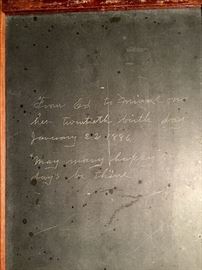 From Ed to Minnie on
her twentieth birth day
January 22 1896
May many happy
day's be thine